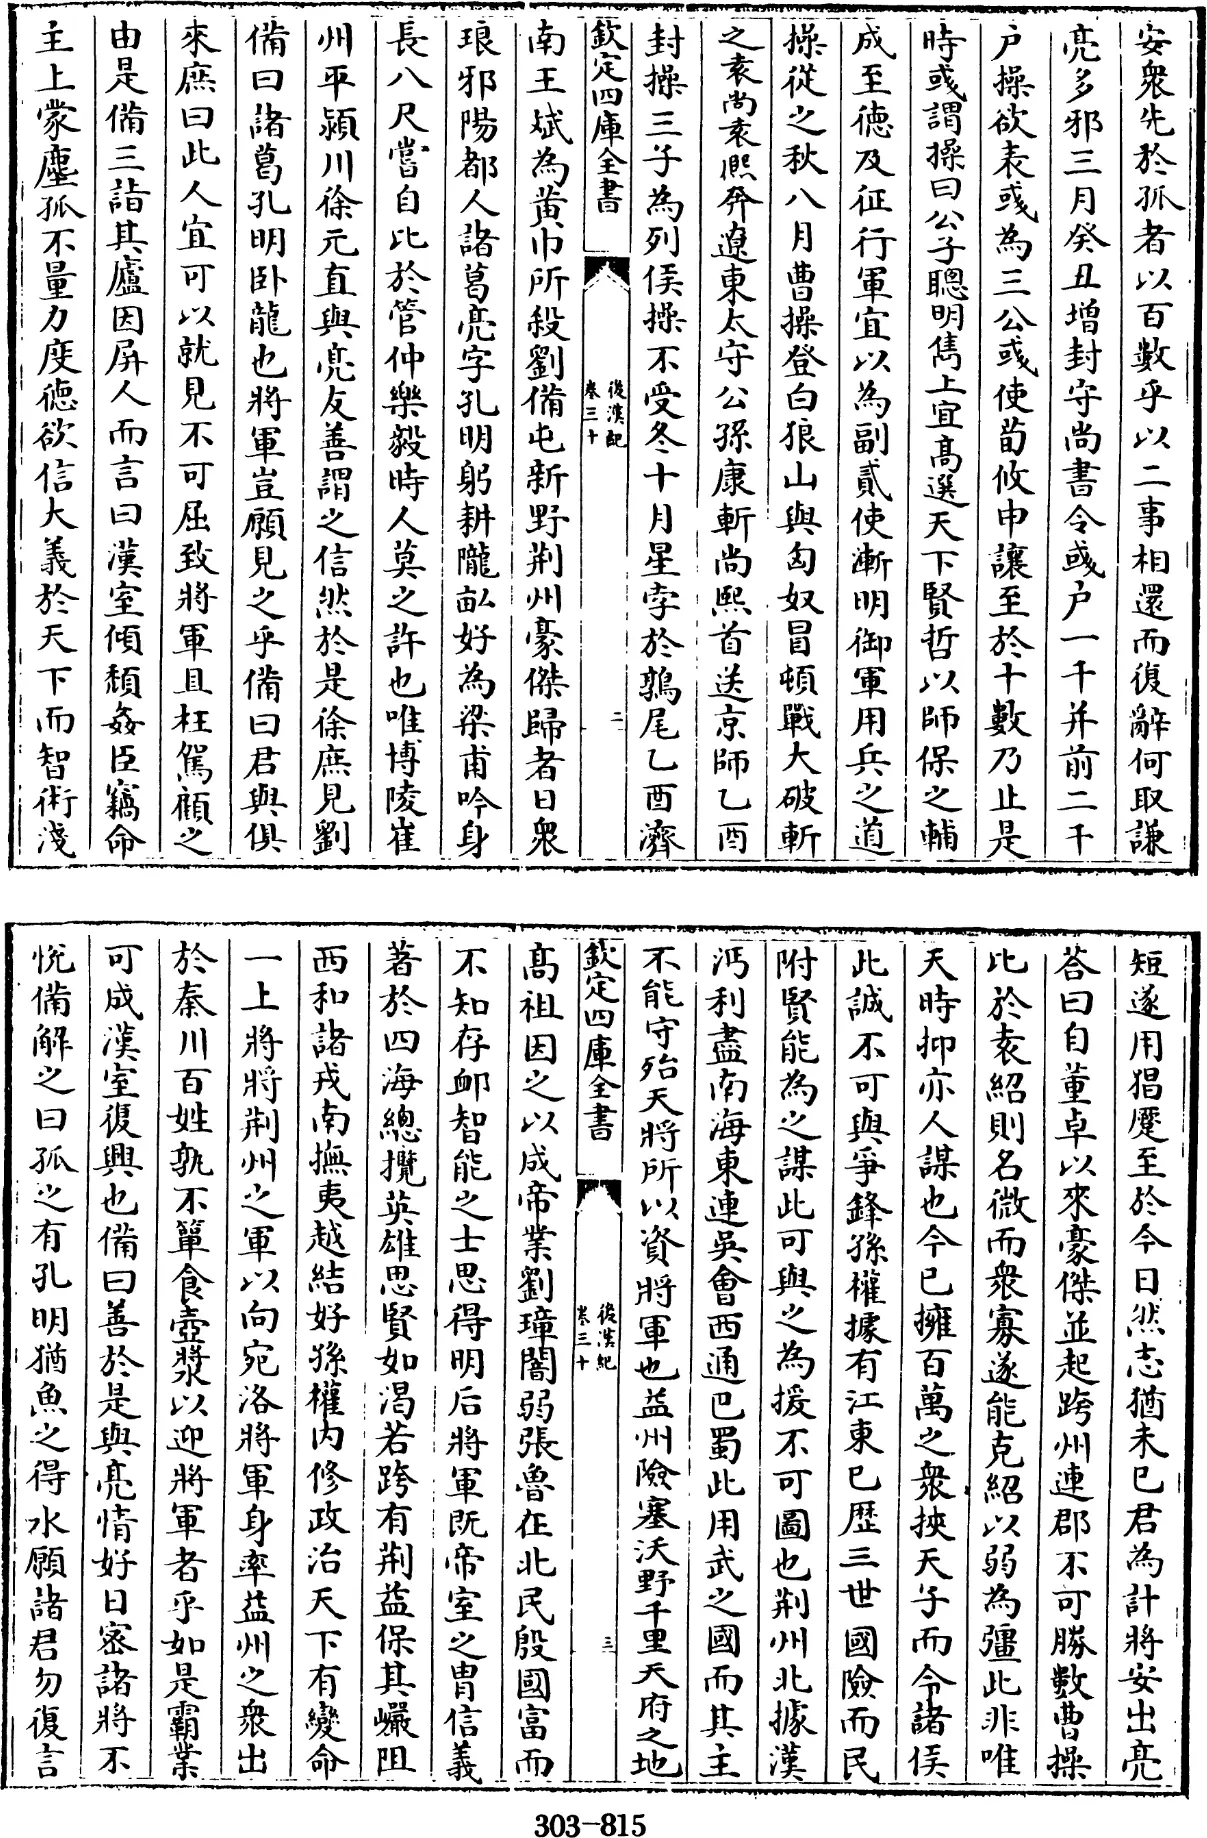 安衆先於孤者以百數乎以二事相還而復辭何取謙
亮多邪三月癸丑增封守尚書令彧户一千并前二千
户操欲表彧為三公彧使荀攸申讓至於十數乃止是
時或謂操曰公子聰明儁上宜高選天下賢哲以師保之輔
成至德及征行軍宜以為副貳使漸明御軍用兵之道
操從之秋八月曹操登白狼山與匈奴冒頓戰大破斬
之袁尚袁熙奔遼東太守公孫康斬尚熙首送京師乙酉
封操三子為列侯操不受冬十月星孛於鶉尾乙酉濟
欽定四庫全書
後漢紀
卷三十
二
南王贇為黄巾所殺劉備屯新野荆州豪傑歸者日衆
琅邪陽都人諸葛亮字孔明躬耕隴畝好為梁甫吟身
長八尺嘗自比於管仲樂毅時人莫之許也唯博陵崔
州平潁川徐元直與亮友善謂之信然於是徐庶見劉
備曰諸葛孔明卧龍也將軍豈願見之乎備曰君與俱
來庶曰此人宜可以就見不可屈致將軍且枉駕顧之
由是備三詣其廬因屏人而言曰漢室傾頹姦臣竊命
主上蒙塵孤不量力度德欲信大義於天下而智術淺
短遂用猖蹷至於今日然志猶未已君為計將安出亮
荅曰自董卓以來豪傑並起跨州連郡不可勝數曹操
比於袁紹則名微而衆寡遂能克紹以弱為彊此非唯
天時抑亦人謀也今已擁百萬之衆挾天子而令諸侯
此誠不可與爭鋒孫權據有江東已歷三世國險而民
附賢能為之謀此可與之為援不可圖也荆州北據漢
沔利盡南海東連吳會西通巴蜀此用武之國而其主
不能守殆天將所以資將軍也益州險塞沃野千里天府之地
欽定四庫全書
後漢紀
卷三十
三
高祖因之以成帝業劉璋闇弱張魯在北民殷國富而
不知存卹智能之士思得明后將軍既帝室之胄信義
著於四海總攬英雄思賢如渴若跨有荆益保其巖阻
西和諸戎南撫夷越結好孫權内修政治天下有變命
一上將將荆州之軍以向宛洛將軍身率益州之衆出
於秦川百姓孰不簞食壺漿以迎將軍者乎如是霸業
可成漢室復興也備曰善於是與亮情好日密諸將不
悦備解之曰孤之有孔明猶魚之得水願諸君勿復言
303-815